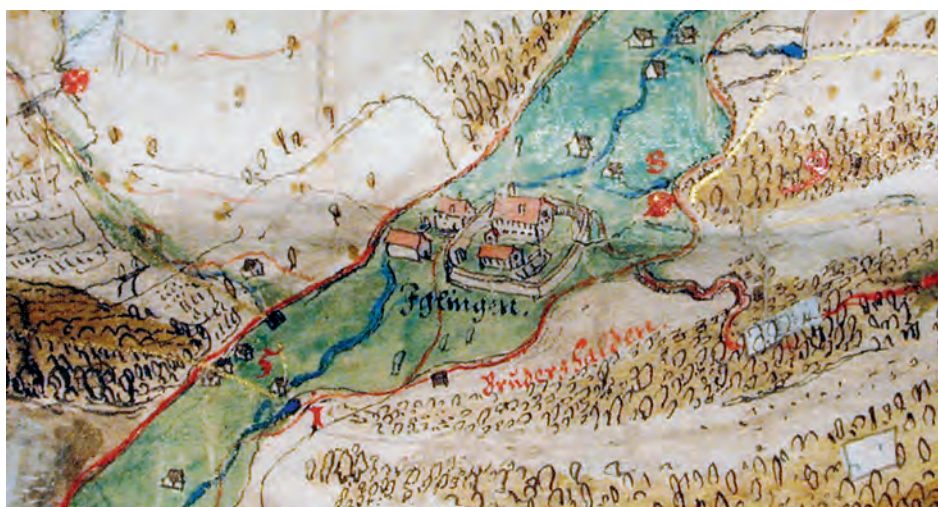 5
Iglingen.
Brüdershalden.
5
1